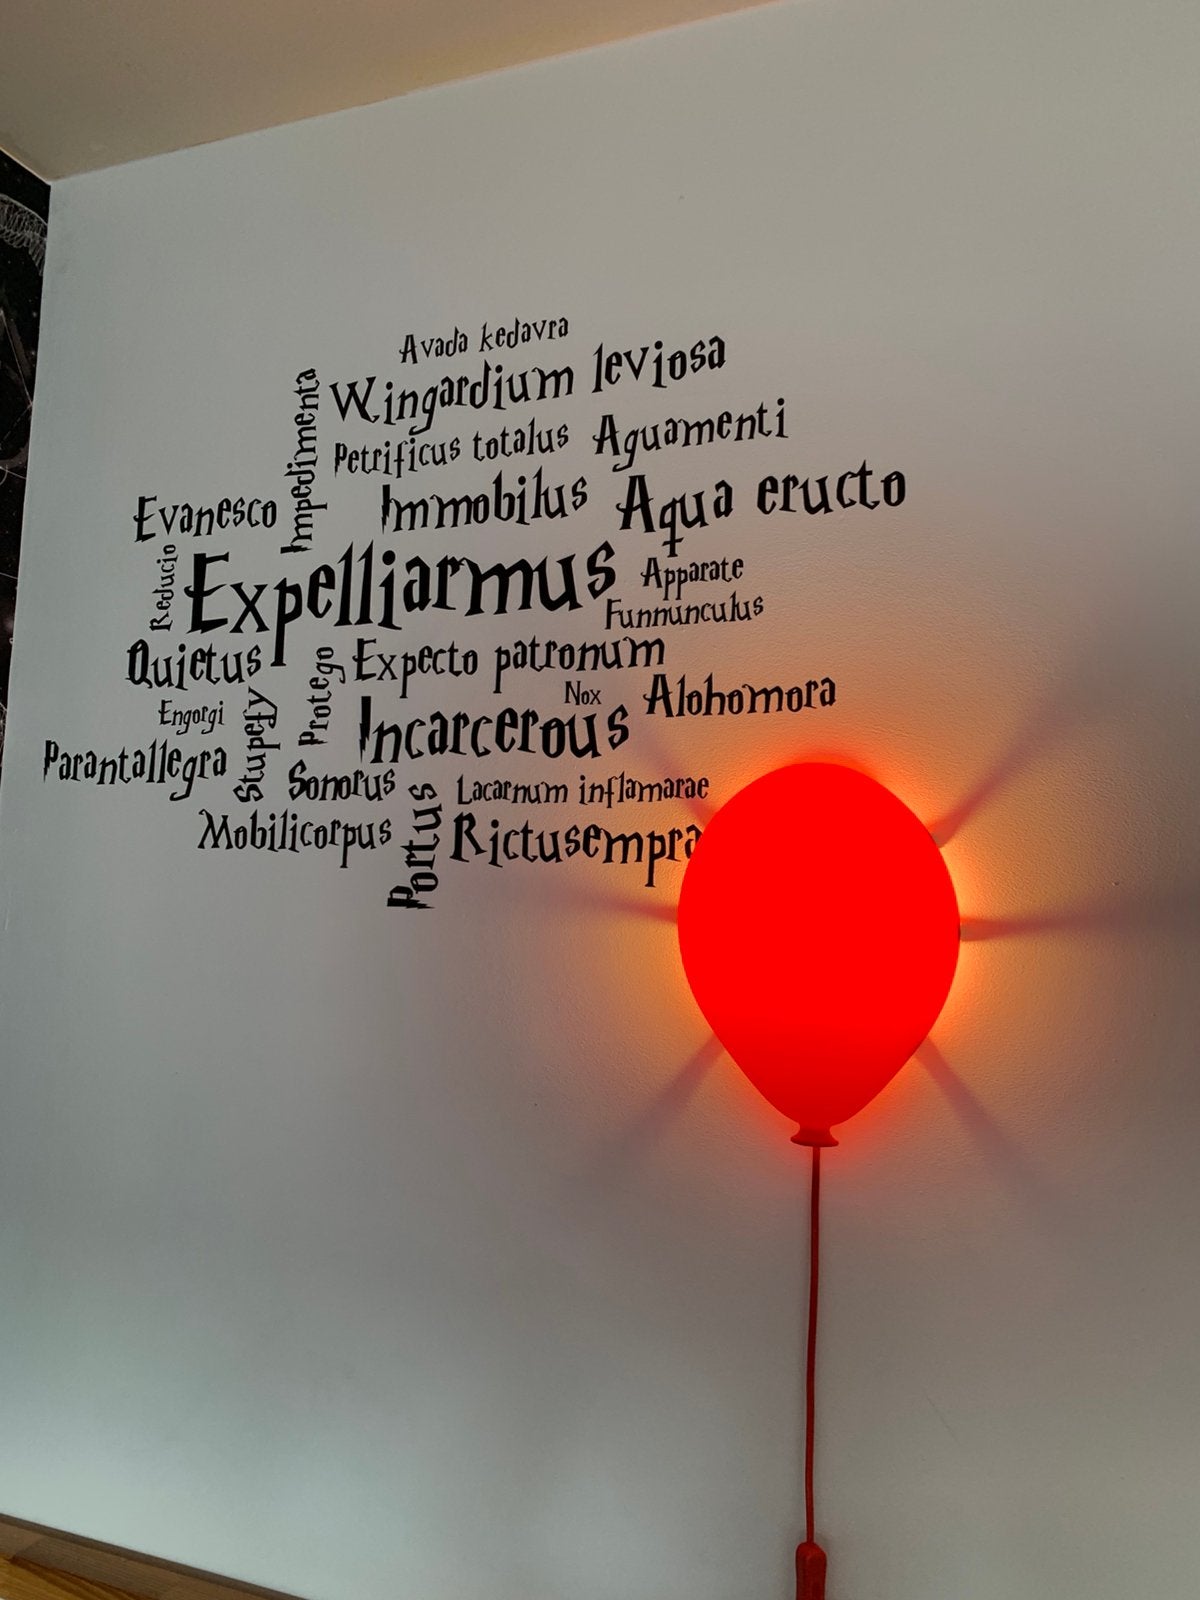 Avada kedavra
Wingardium leviosa
Impedimenta
Petrificus totalus
Aguamenti
Evanesco
Immobilus
Aqua eructo
Reducio
Expelliarmus
Apparate
Funnunculus
Quietus
Protego
Expecto patronum
Engorgi
Stupefy
Nox
Alohomora
Incarcerous
Parantallegra
Sonorus
Portus
Lacarnum inflamarae
Mobilicorpus
Rictusempra